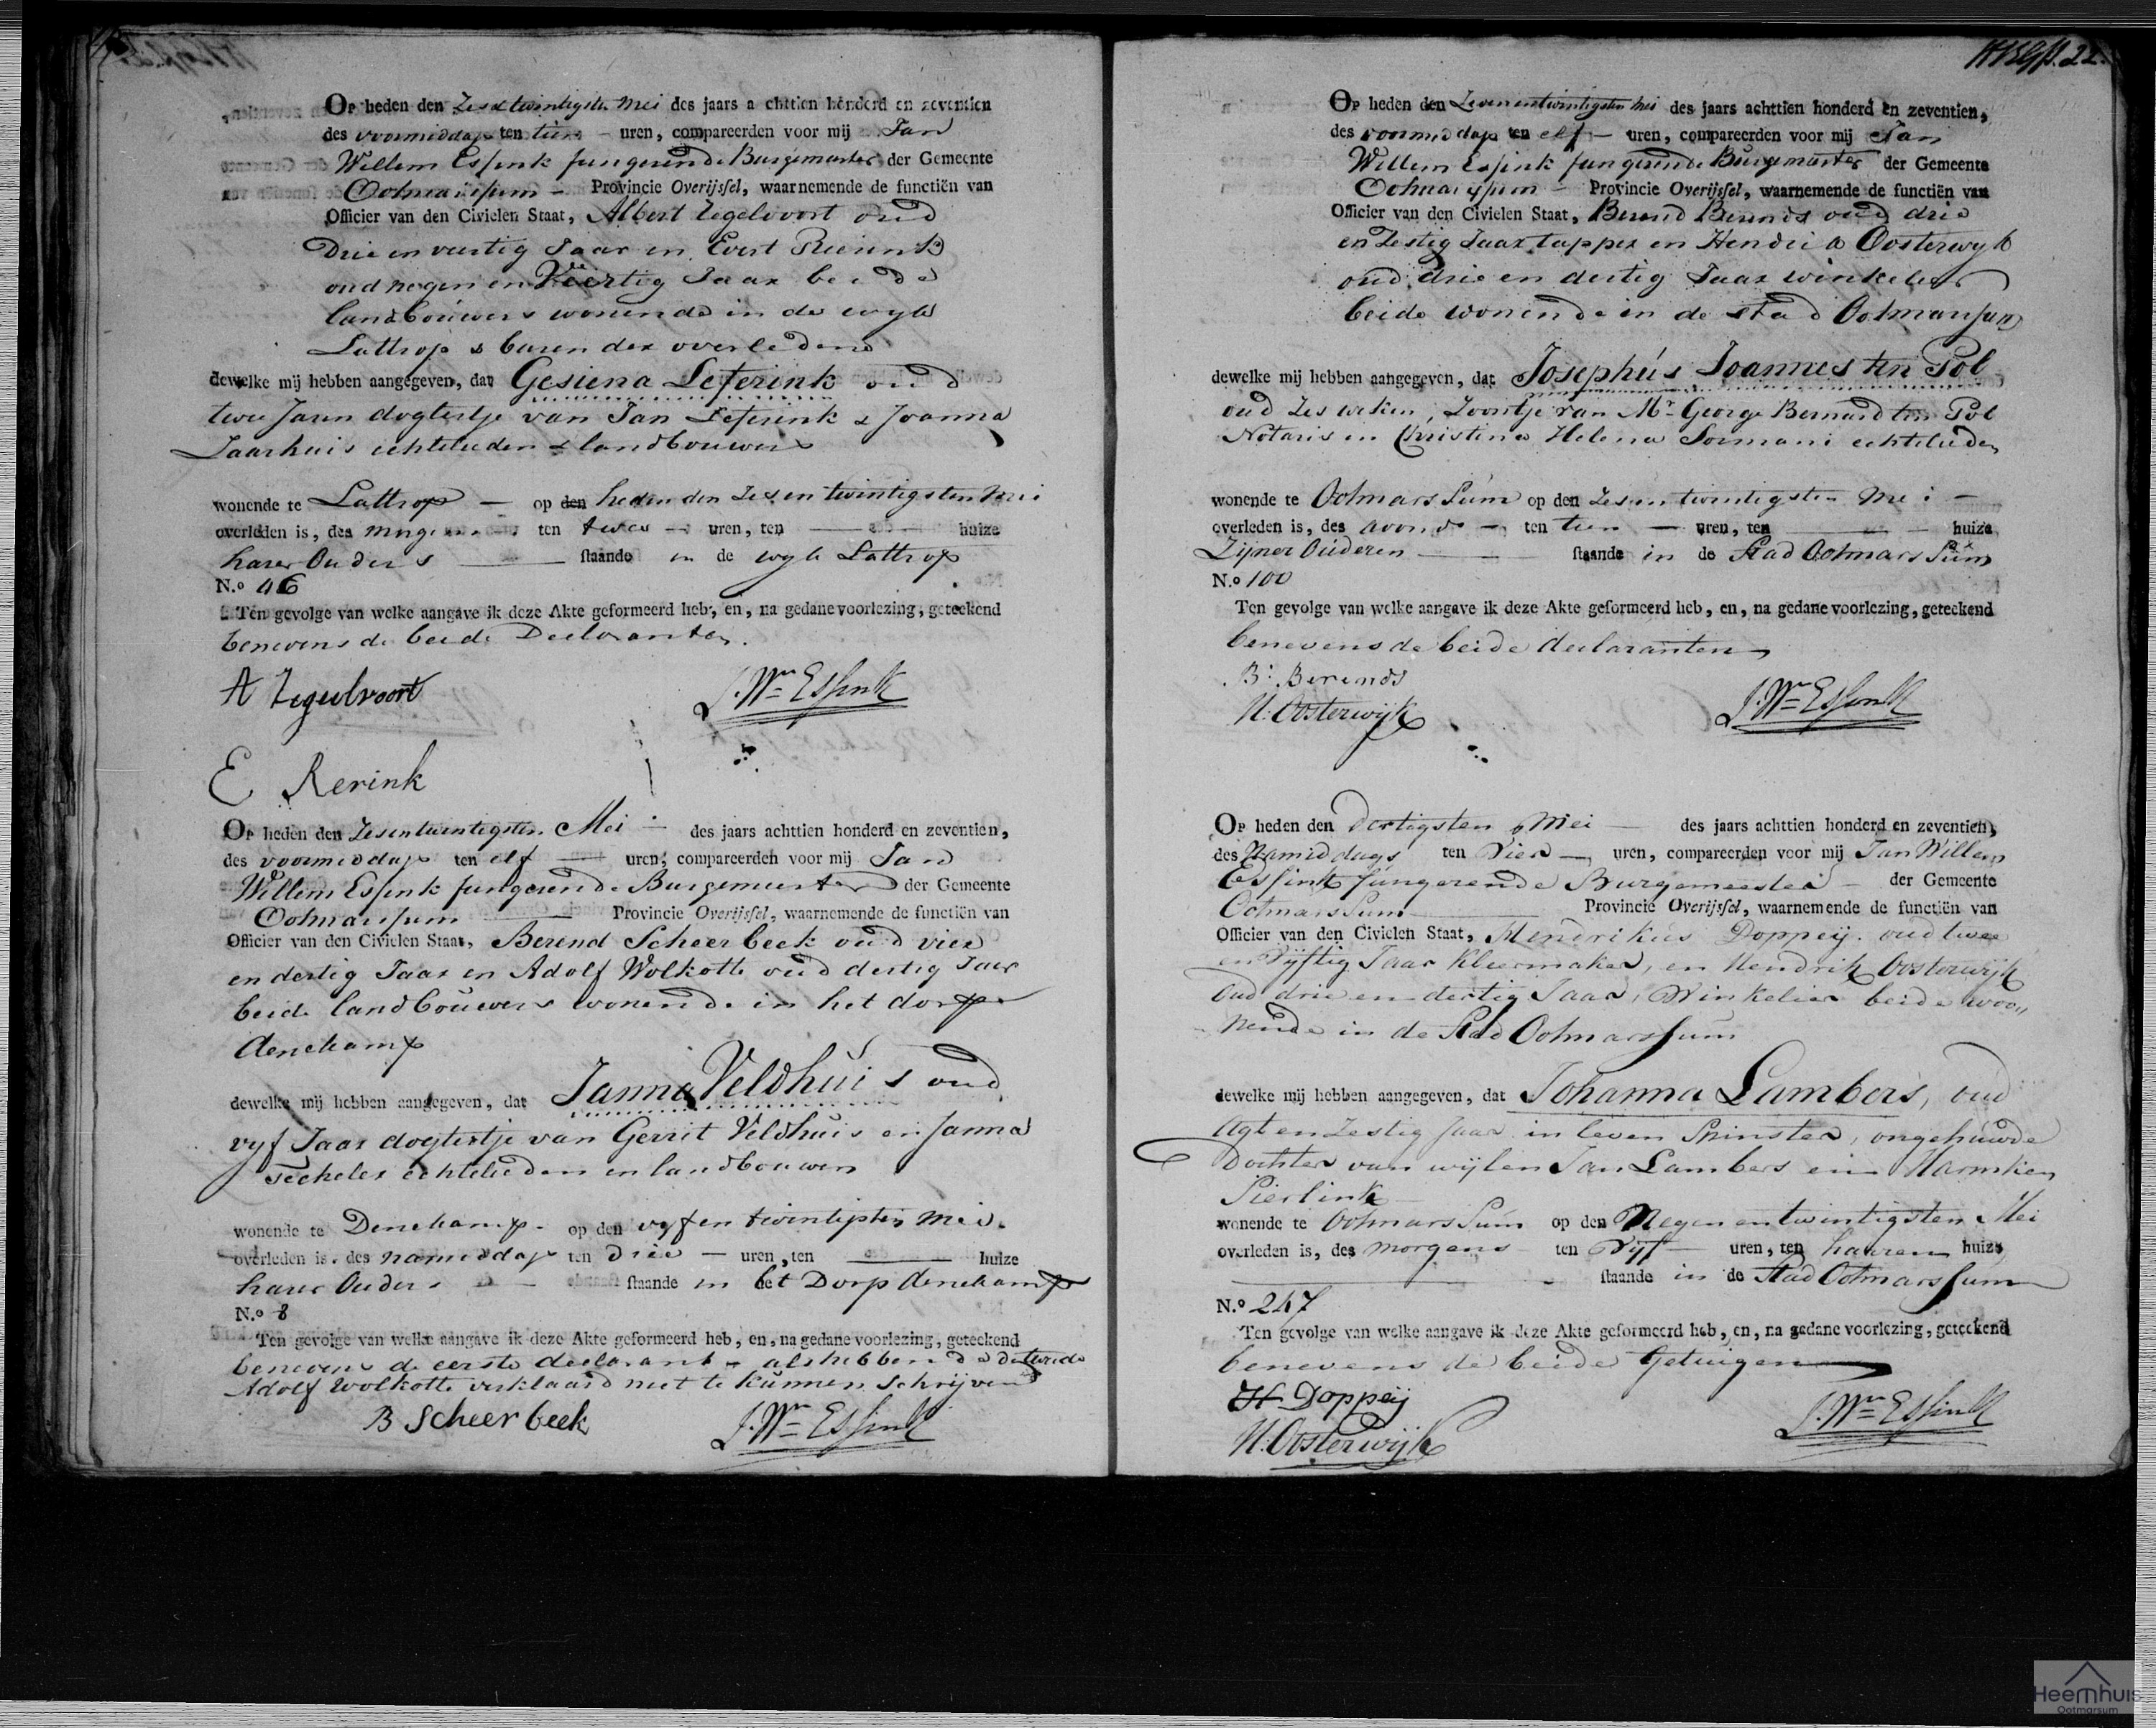 Op heden den Zesentwintigsten Mei des jaars achttien honderd en zeventien
des voormiddags ten tien uren, compareerden voor mij Jan
Willem Essink fungerende Burgemeester der Gemeente
Ootmarssum Provincie Overijssel, waarnemende de functiën van
Officier van den Civielen Staat, Albert Zegelvoort oud
Drie en veertig Jaar en Evert Reerink
oud negen en Veertig Jaar beide
landbouwers wonende in de wyk
Lattrop & buren der overledene
dewelke mij hebben aangegeven, dat Gesiena Leferink oud
twee Jaren dogtertje van Jan Leferink & Joanna
Zaarhuis echtelieden & landbouwers
wonende te Lattrop op den heden den Zesen twintigsten Mei
overleden is, des morgens ten twee uren, ten huize
harer Ouders staande in de wyk Lattrop
N.o 46
Ten gevolge van welke aangave ik deze Akte geformeerd heb, en, na gedane voorlezing, geteekend
benevens de beide Declaranten.
A Zegelvoort J. Wm Essink
E Rerink
Op heden den Zesentwintigsten Mei des jaars achttien honderd en zeventien,
des voormiddags ten elf uren, compareerden voor mij Jan
Willem Essink fungerende Burgemeester der Gemeente
Ootmarssum Provincie Overijssel, waarnemende de functiën van
Officier van den Civielen Staat, Berend Scheerbeek oud vier
en dertig Jaar en Adolf Wolkotte oud dertig Jaar
beide landbouwers wonende in het dorp
denekamp
dewelke mij hebben aangegeven, dat Janna Veldhuis oud
vyf Jaar dogtertje van Gerrit Veldhuis en Janna
Techeler echtelieden en landbouwers
wonende te Denekamp op den vyf en twintigsten Mei
overleden is, des namiddags ten drie uren, ten huize
harer Ouders staande in het Dorp denekamp
N.o 8
Ten gevolge van welke aangave ik deze Akte geformeerd heb, en, na gedane voorlezing, geteekend
benevens de eerste declarant als hebbende de tweede
Adolf Wolkotte verklaard niet te kunnen schrijven
B Scheerbeek J. Wm Essink
22.
Op heden den Zevenentwintigsten Mei des jaars achttien honderd en zeventien,
des voormiddags ten elf uren, compareerden voor mij Jan
Willem Essink fungerende Burgemeester der Gemeente
Ootmarssum Provincie Overijssel, waarnemende de functiën van
Officier van den Civielen Staat, Berend Berends oud drie
en Zestig Jaar tapper en Hendrik Oosterwyk
oud drie en dertig Jaar winkelier
beide wonende in de stad Ootmarssum
dewelke mij hebben aangegeven, dat Josephús Joannes ten Pol
oud Zes weken, Zoontje van Mr George Bernard ten Pol
Notaris en Christina Helena Sormani echtelieden
wonende te Ootmarssum op den Zesen twintigsten Mei
overleden is, des avonds ten tien uren, ten huize
Zijner Oúderen staande in de Stad Ootmarssum
N.o 100
Ten gevolge van welke aangave ik deze Akte geformeerd heb, en, na gedane voorlezing, geteekend
benevens de beide declaranten
B: Berends
H. Oosterwijk J. Wm Essink
Op heden den dertigsten Mei des jaars achttien honderd en zeventien,
des Namiddags ten Vier uren, compareerden voor mij Jan Willem
Essink fúngerende Burgemeester der Gemeente
Ootmarssum Provincie Overijssel, waarnemende de functiën van
Officier van den Civielen Staat, Hendrikus Doppeij oud twee
en Vijftig Jaar Kleermaker, en Hendrik Oosterwijk
Oud drie en dertig Jaar, Winkelier beide woo„
nende in de Stad Ootmarssum
dewelke mij hebben aangegeven, dat Johanna Lambers, oud
Agt en Zestig Jaar in leven Spinster, ongehuwde
Dochter van wijlen Jan Lambers en Harmken
Pierlink
wonende te Ootmarssum op den Negen en twintigsten Mei
overleden is, des morgens ten Vijf uren, ten haaren huize
staande in de Stad Ootmarssum
N.o 247
Ten gevolge van welke aangave ik deze Akte geformeerd heb, en, na gedane voorlezing, geteekend
benevens de beide Getuigen
H Doppeij
H. Oosterwijk J. Wm Essink
Heemhuis
Ootmarsum